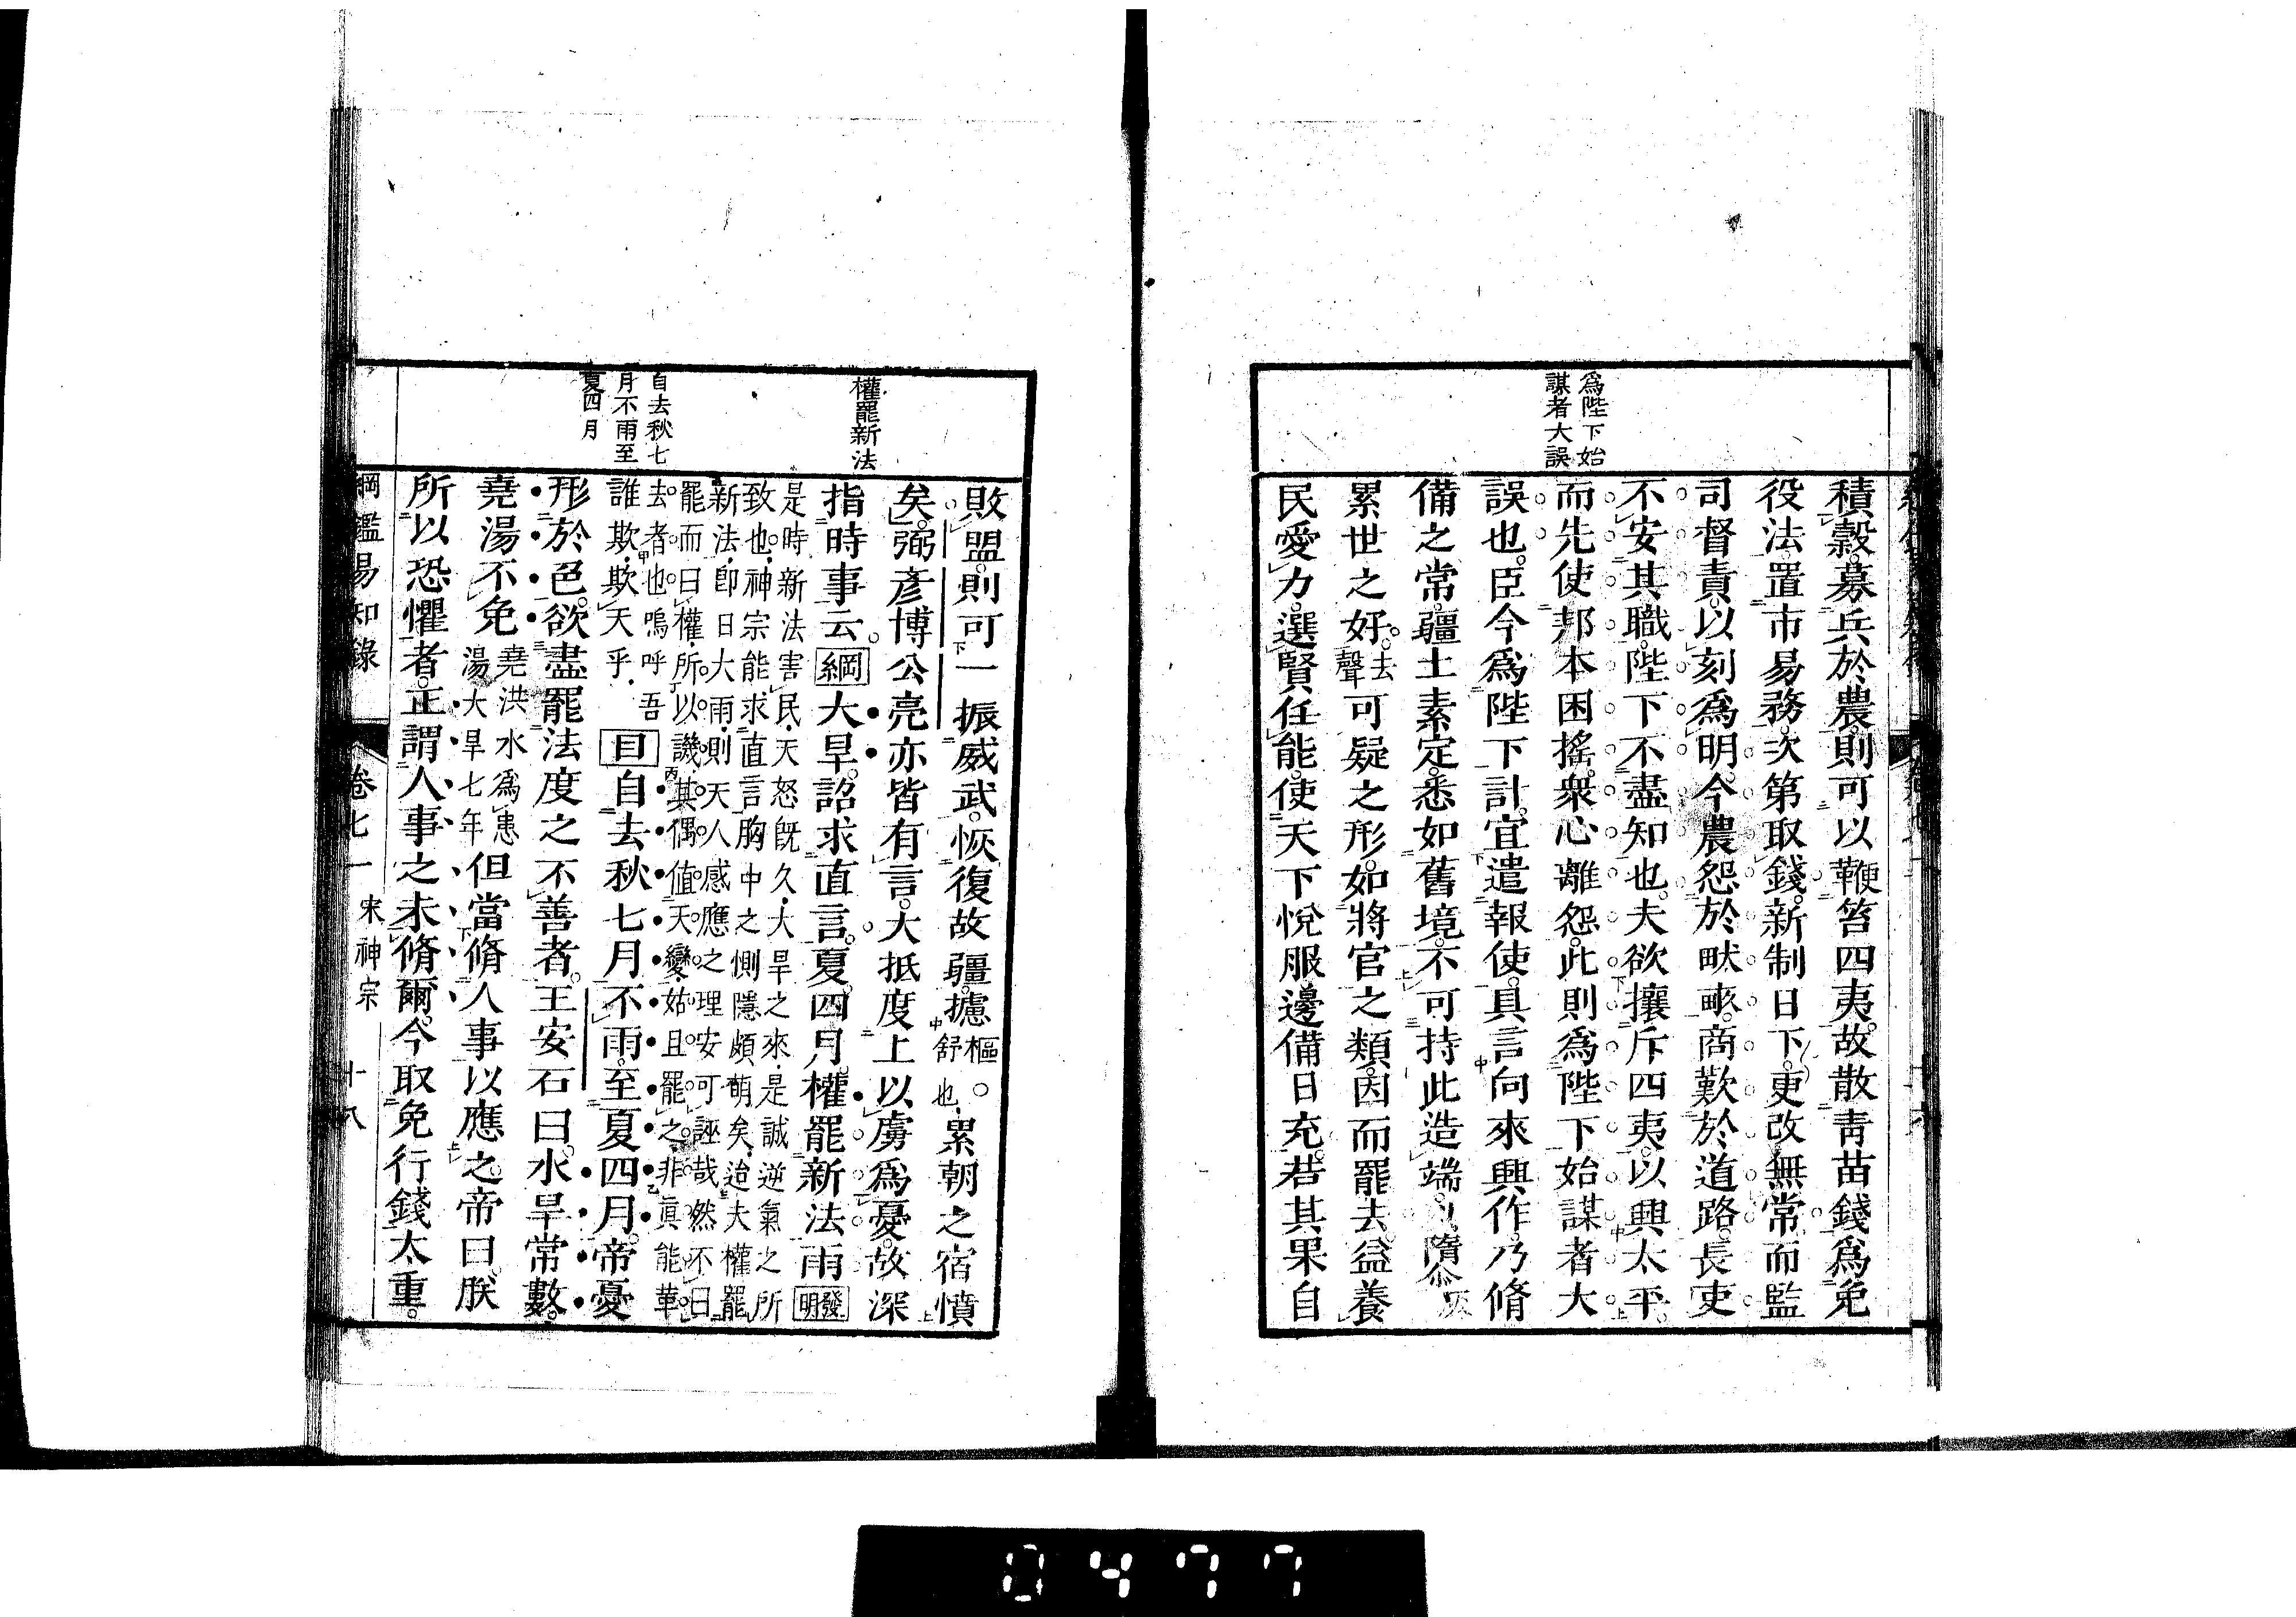 爲陛下始
謀者大誤
積穀募兵於農則可以鞭笞四夷故散靑苗錢爲免
役法置市易務次第取錢新制日下更改無常而監
司督責以刻爲明今農怨於畎畝商歎於道路長吏
不安其職陛下不盡知也夫欲攘斥四夷以興太平
而先使邦本困搖衆心離怨此則爲陛下始謀者大
誤也臣今爲陛下計宜遣報使具言向來興作乃脩
備之常疆土素定悉如舊境不可持此造端以隳
累世之好去聲可疑之形如將官之類因而罷去益養
民愛力選賢任能使天下悅服邊備日充若其果自
權罷新法
自去秋七
月不雨至
夏四月
敗盟則可一振威武恢復故疆攄樞舒也累朝之宿憤
矣弼彥博公亮亦皆有言大抵度上以虜爲憂故深
指時事云綱大旱詔求直言夏四月權罷新法雨發明
是時新法害民天怒旣久大旱之來是誠逆氣之所
致也神宗能求直言胸中之惻隱頗萌矣迨夫權罷
新法卽日大雨則天人感應之理安可誣哉然不曰
罷而曰權所以譏其偶値天變姑且罷之非眞能革
去者也嗚呼吾
誰欺欺天乎
目自去秋七月不雨至夏四月帝憂
形於色欲盡罷法度之不善者王安石曰水旱常數
堯湯不免堯洪水爲患湯大旱七年但當脩人事以應之帝曰朕
所以恐懼者正謂人事之未脩爾今取免行錢太重
綱鑑易知錄 卷七一 宋神宗 十八
0477